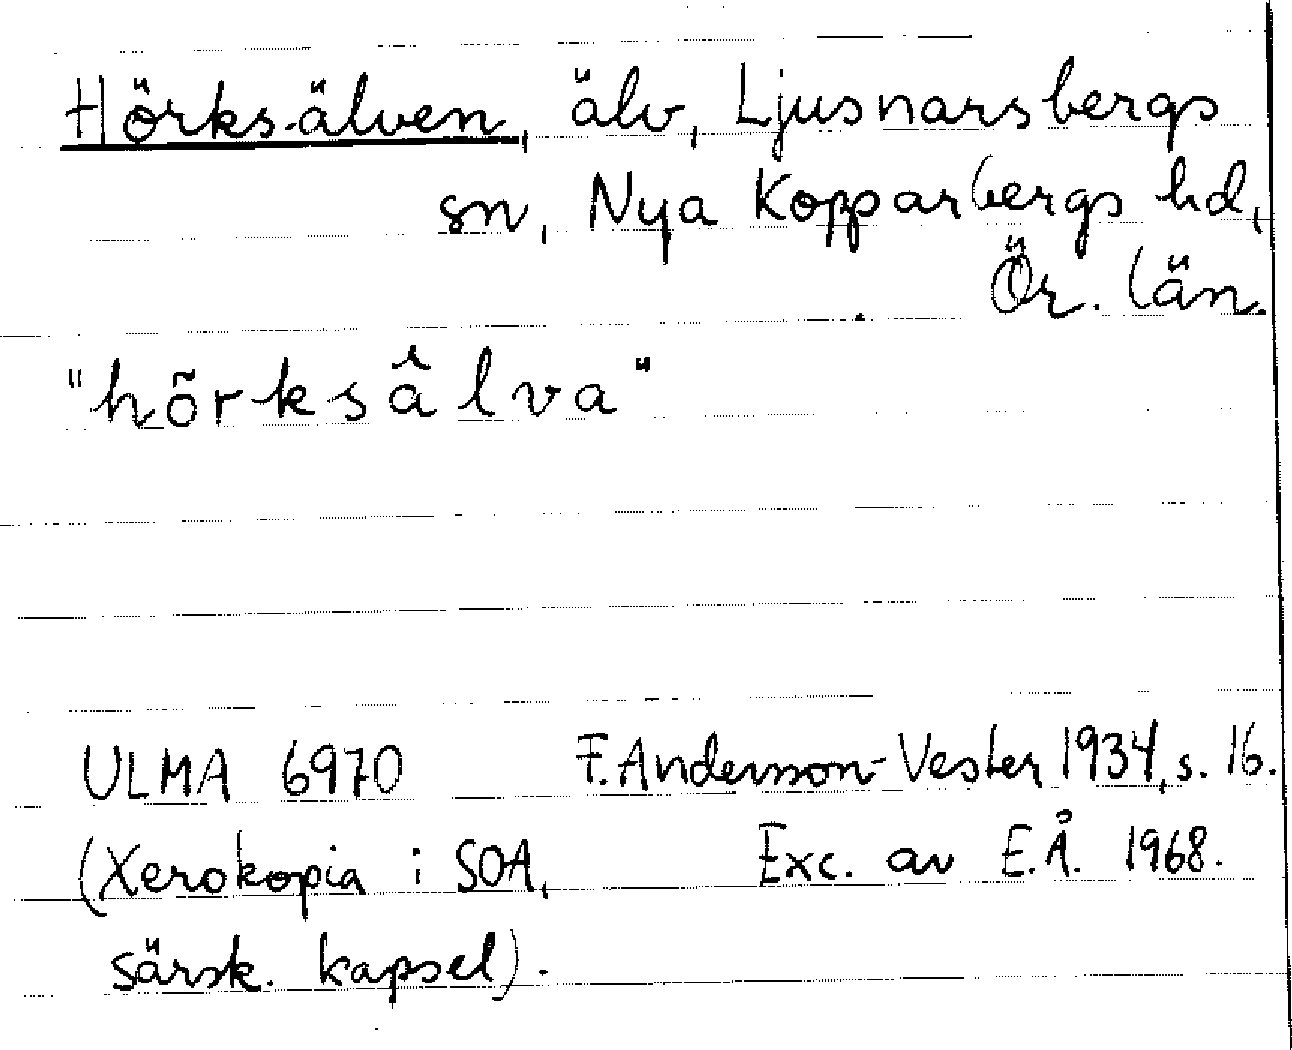 Hörksälven, älv, Ljusnarsbergs
sn, Nya Kopparbergs hd,
Ör. län.
"hõrksâlva"
ULMA 6970 F. Andersson-Vester 1934, s. 16.
(Xerokopia i SOA, Exc. av E.Å. 1968.
särsk. kapsel).